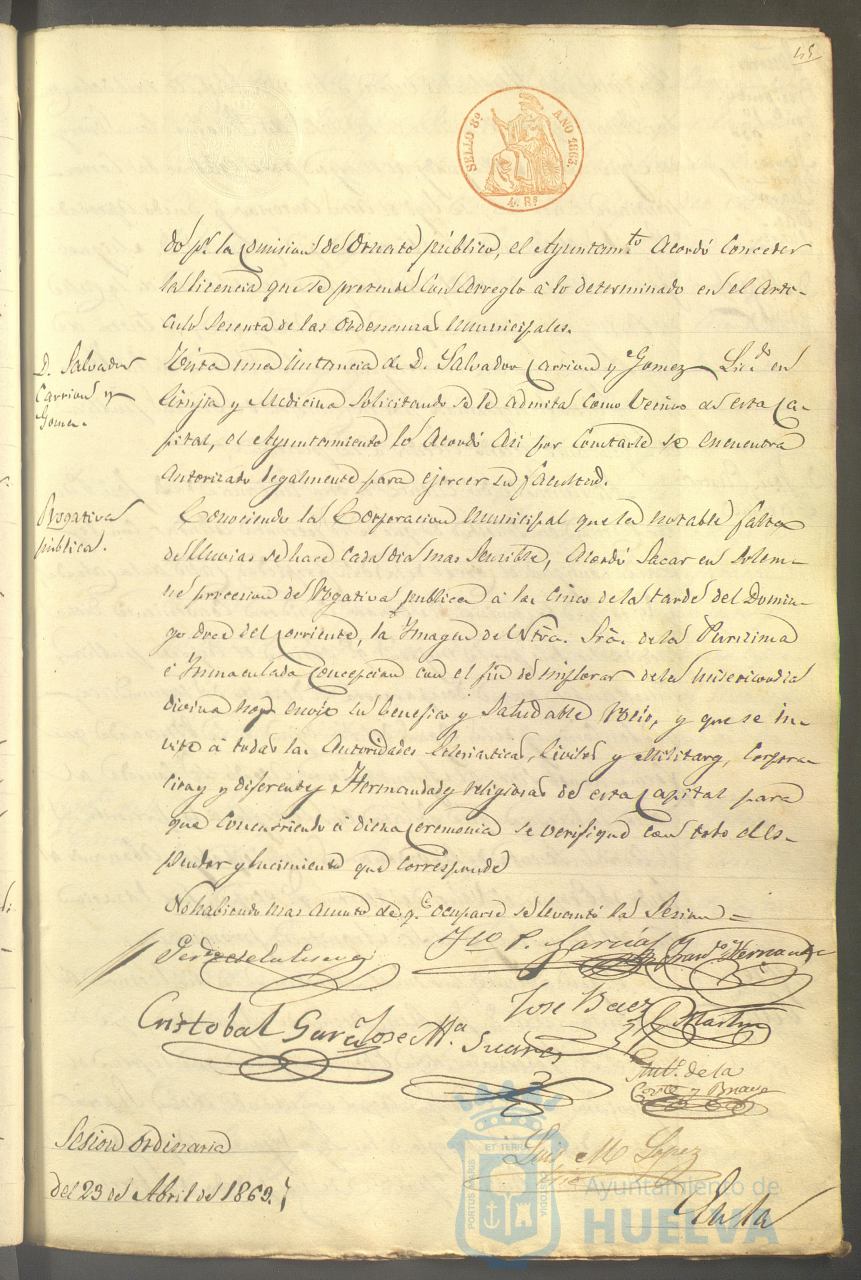 45
SELLO 8º AÑO 1863.
4. Rs
do pr. la Comision de Ornato público, el Ayuntamto. Acordó Conceder
la licencia que se pretende con arreglo a lo determinado en el Arti-
culo Sesenta de las Ordenanzas Municipales.
D. Salvador
Carrion y
Gomez.
Vista una instancia de D. Salvador Carrion y Gomez Licdo. en
Cirujia y Medicina solicitando se le admita como Vecino de esta Ca-
pital, el Ayuntamiento lo Acordó Asi por Constarle se encuentra
Autorizado legalmente para ejercer su facultad.
Rogativa
publica.
Conociendo la Corporacion Municipal que la notable falta
de lluvias se hace cada dia mas Sensible, Acordó Sacar en Solem-
ne procesion de Rogativa publica á las Cinco de la tarde del Domin-
go doce del Corriente, la Ymagen de Ntra. Sra. de la Purisima
é Ynmaculada Concepcion con el fin de implorar de la misericordia
divina nos envie su benefico y Saludable Rocio, y que se in-
vite á todas las Autoridades Eclesiasticas, Civiles y Militares, Corpora-
ciones y diferentes Hermandades religiosas de esta Capital para
que Concurriendo á dicha Ceremonia se verifique con todo el Es-
plendor y lucimiento que Corresponde
No habiendo mas asunto de qe. ocuparse se levantó la Sesion =
P. Garcia
Franco. Hernandez
Cristobal Garcia
Jose Ma. Suarez
Jose Baez
C. Martin
Anto. de la
Corte y Bravo
Luis M. Lopez
Sesion Ordinaria
del 23 de Abril de 1863.
PORTUS MARIS ET TERRAE CUSTODIA
Ayuntamiento de
HUELVA